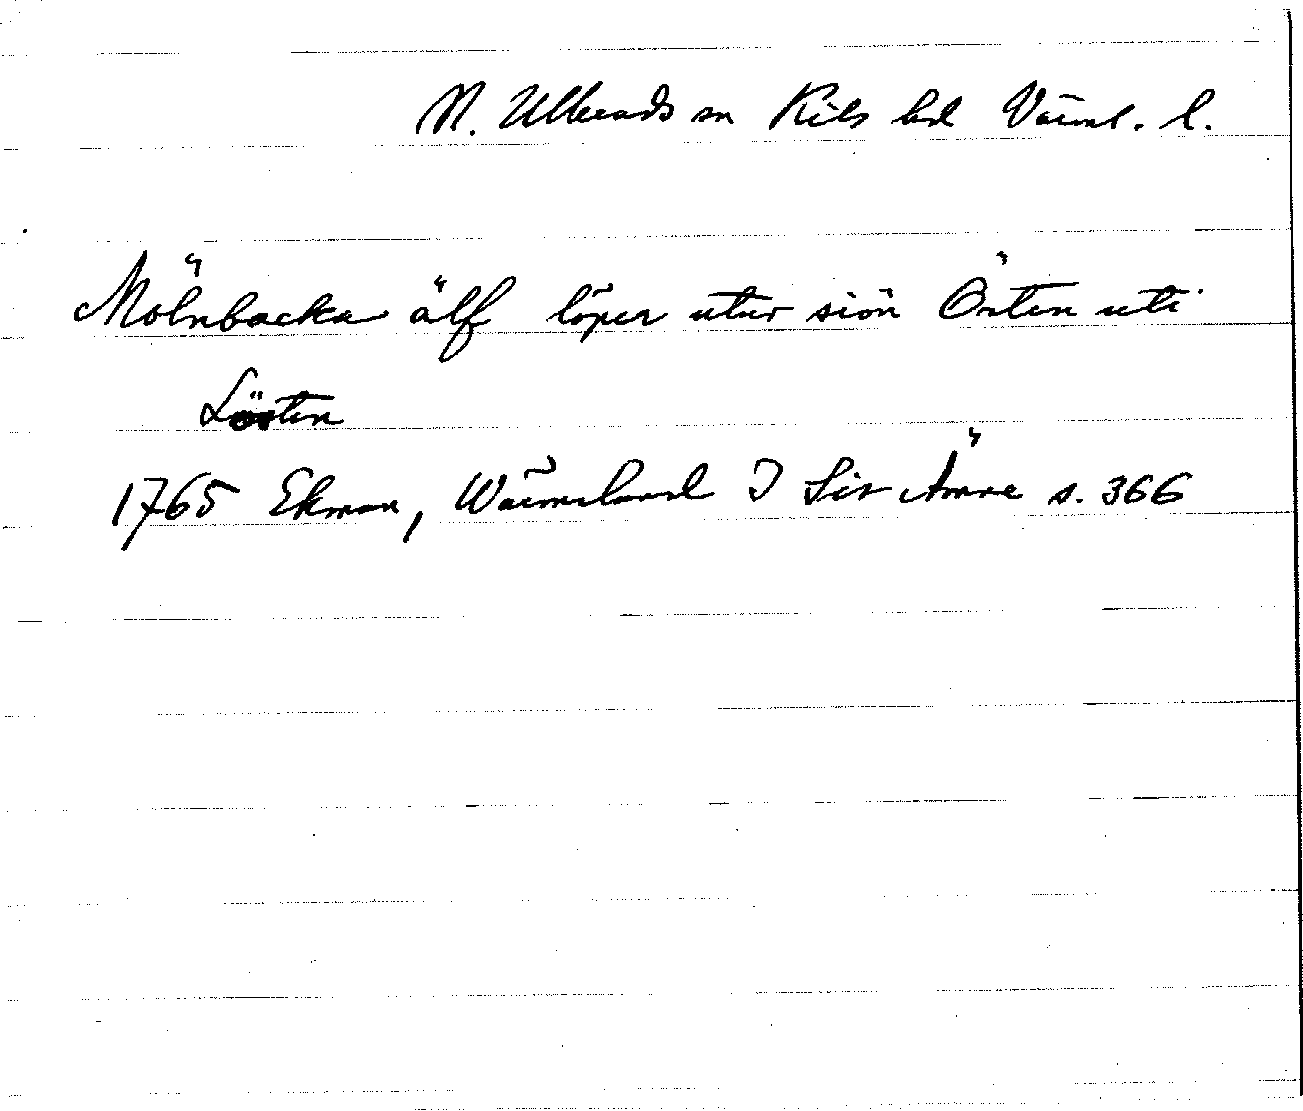 N. Ullerads sn Kils hd Värml. l.
Mölnbacka älf löper utur siön Östen uti
Lösten
1765 Ekman, Wärmeland I s. 366